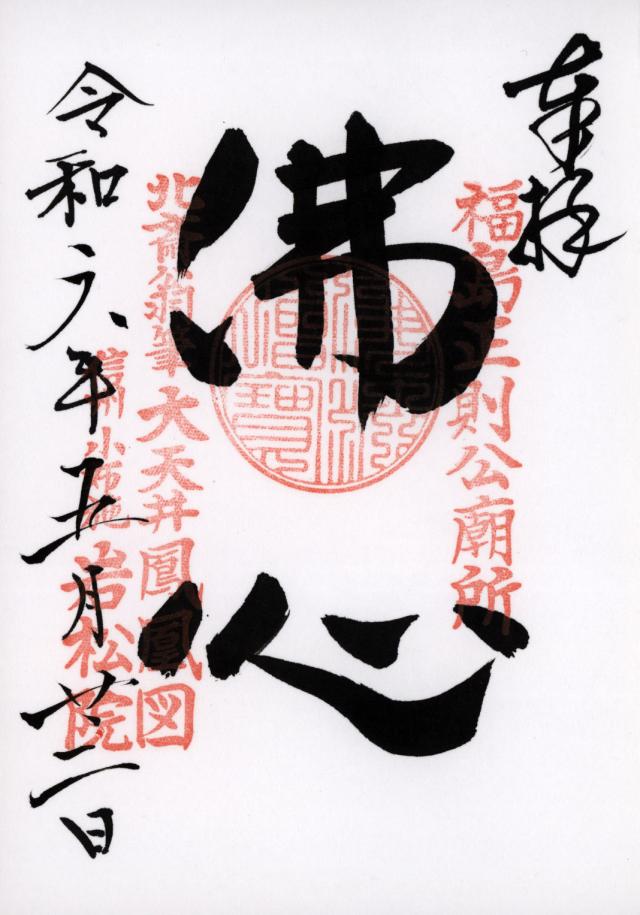 奉拝
福島正則公廟所
佛心
北斎翁筆 大天井鳳凰図
信州小布施 岩松院
令和六年五月廿二日